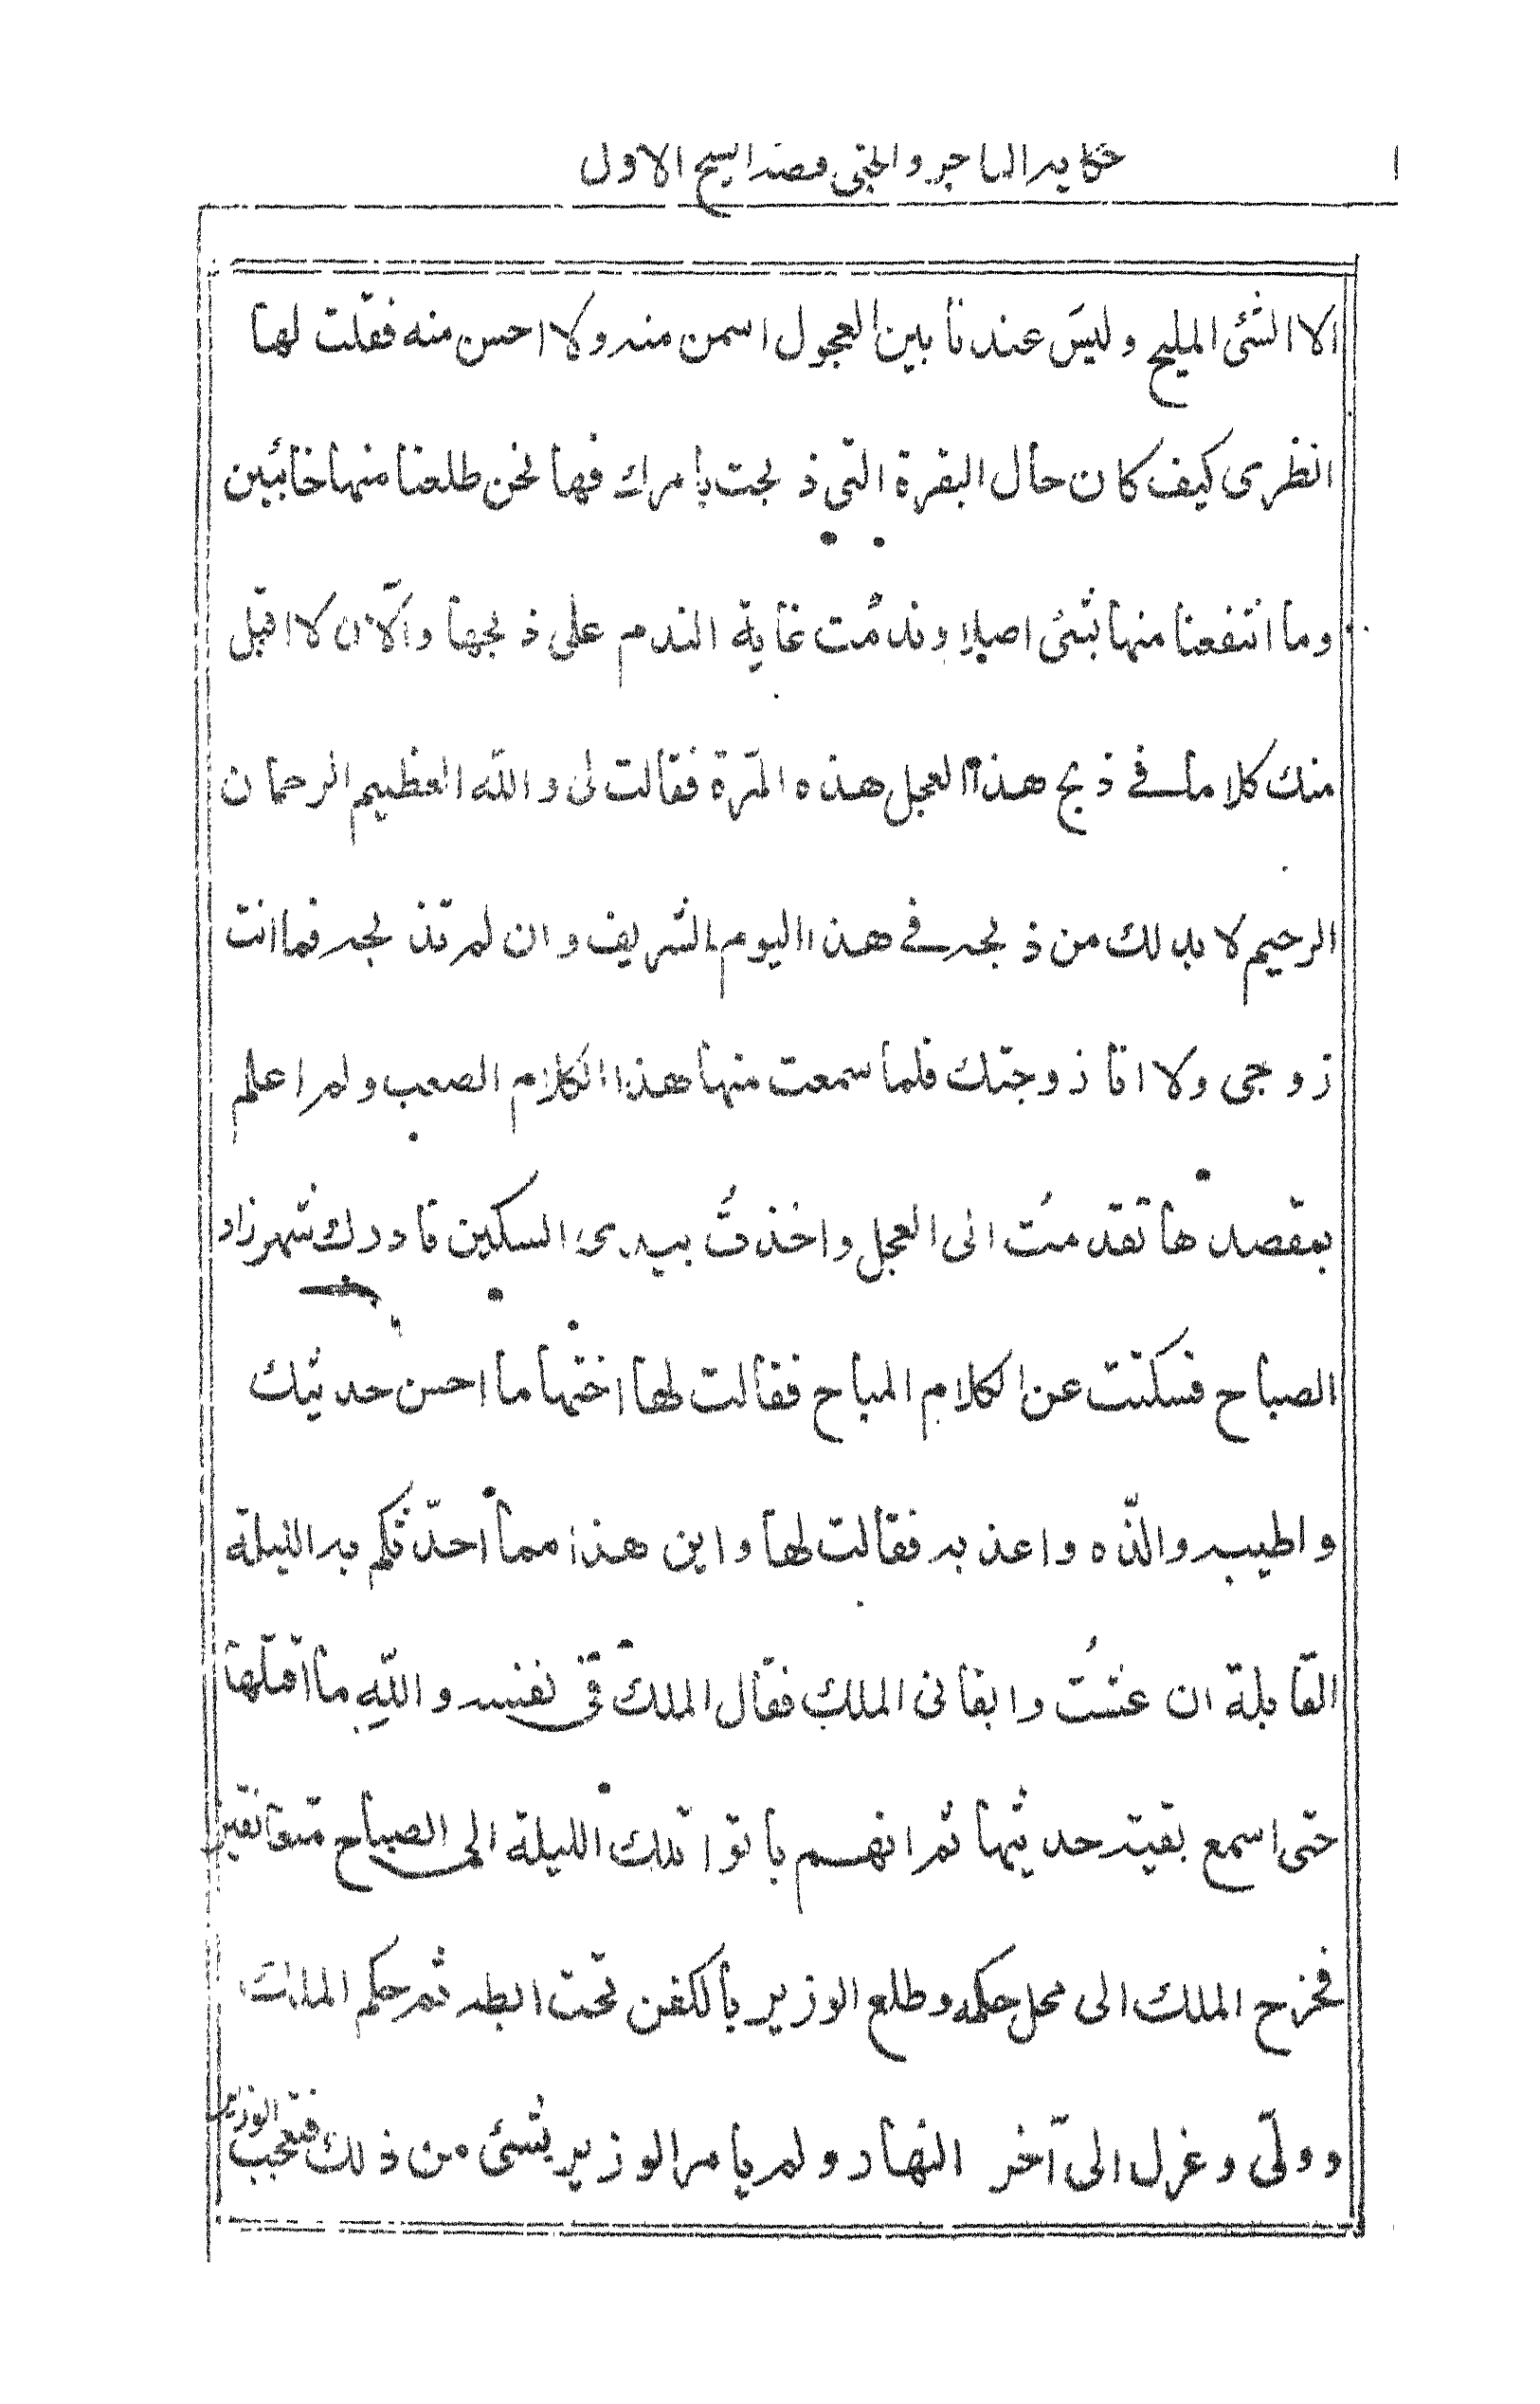 حكاية التاجر والجني وقصة الشيخ الاول
الا الشئ المليح وليس عندنا بين العجول اسمن منه ولا احسن منه فقلت لها
انظرى كيف كان حال البقرة التي ذبحت بامرك فها نحن طلعنا منها خائبين
وما انتفعنا منها بشئ اصلا وندمت غاية الندم على ذبحها والآن لا اقبل
منك كلاما في ذبح هذا العجل هذه المرة فقالت لى والله العظيم الرحمان
الرحيم لا بد لك من ذبحه في هذا اليوم الشريف وان لم تذبحه فما انت
زوجى ولا انا زوجتك فلما سمعت منها هذا الكلام الصعب ولم اعلم
بمقصدها تقدمت الى العجل واخذت بيدى السكين فادرك شهرزاد
الصباح فسكتت عن الكلام المباح فقالت لها اختها ما احسن حديثك
واطيبه والذه واعذبه فقالت لها واين هذا مما احدّثكم به الليلة
القابلة ان عشتُ وابقانى الملك فقال الملك فى نفسه والله ما اقتلها
حتى اسمع بقية حديثها ثم انهم باتوا تلك الليلة الى الصباح متعانقين
فخرج الملك الى محل حكمه وطلع الوزير بالكفن تحت ابطه ثم حكم الملك
وولّى وعزل الى آخر النهار ولم يامر الوزير بشئ من ذلك فتعجب الوزير